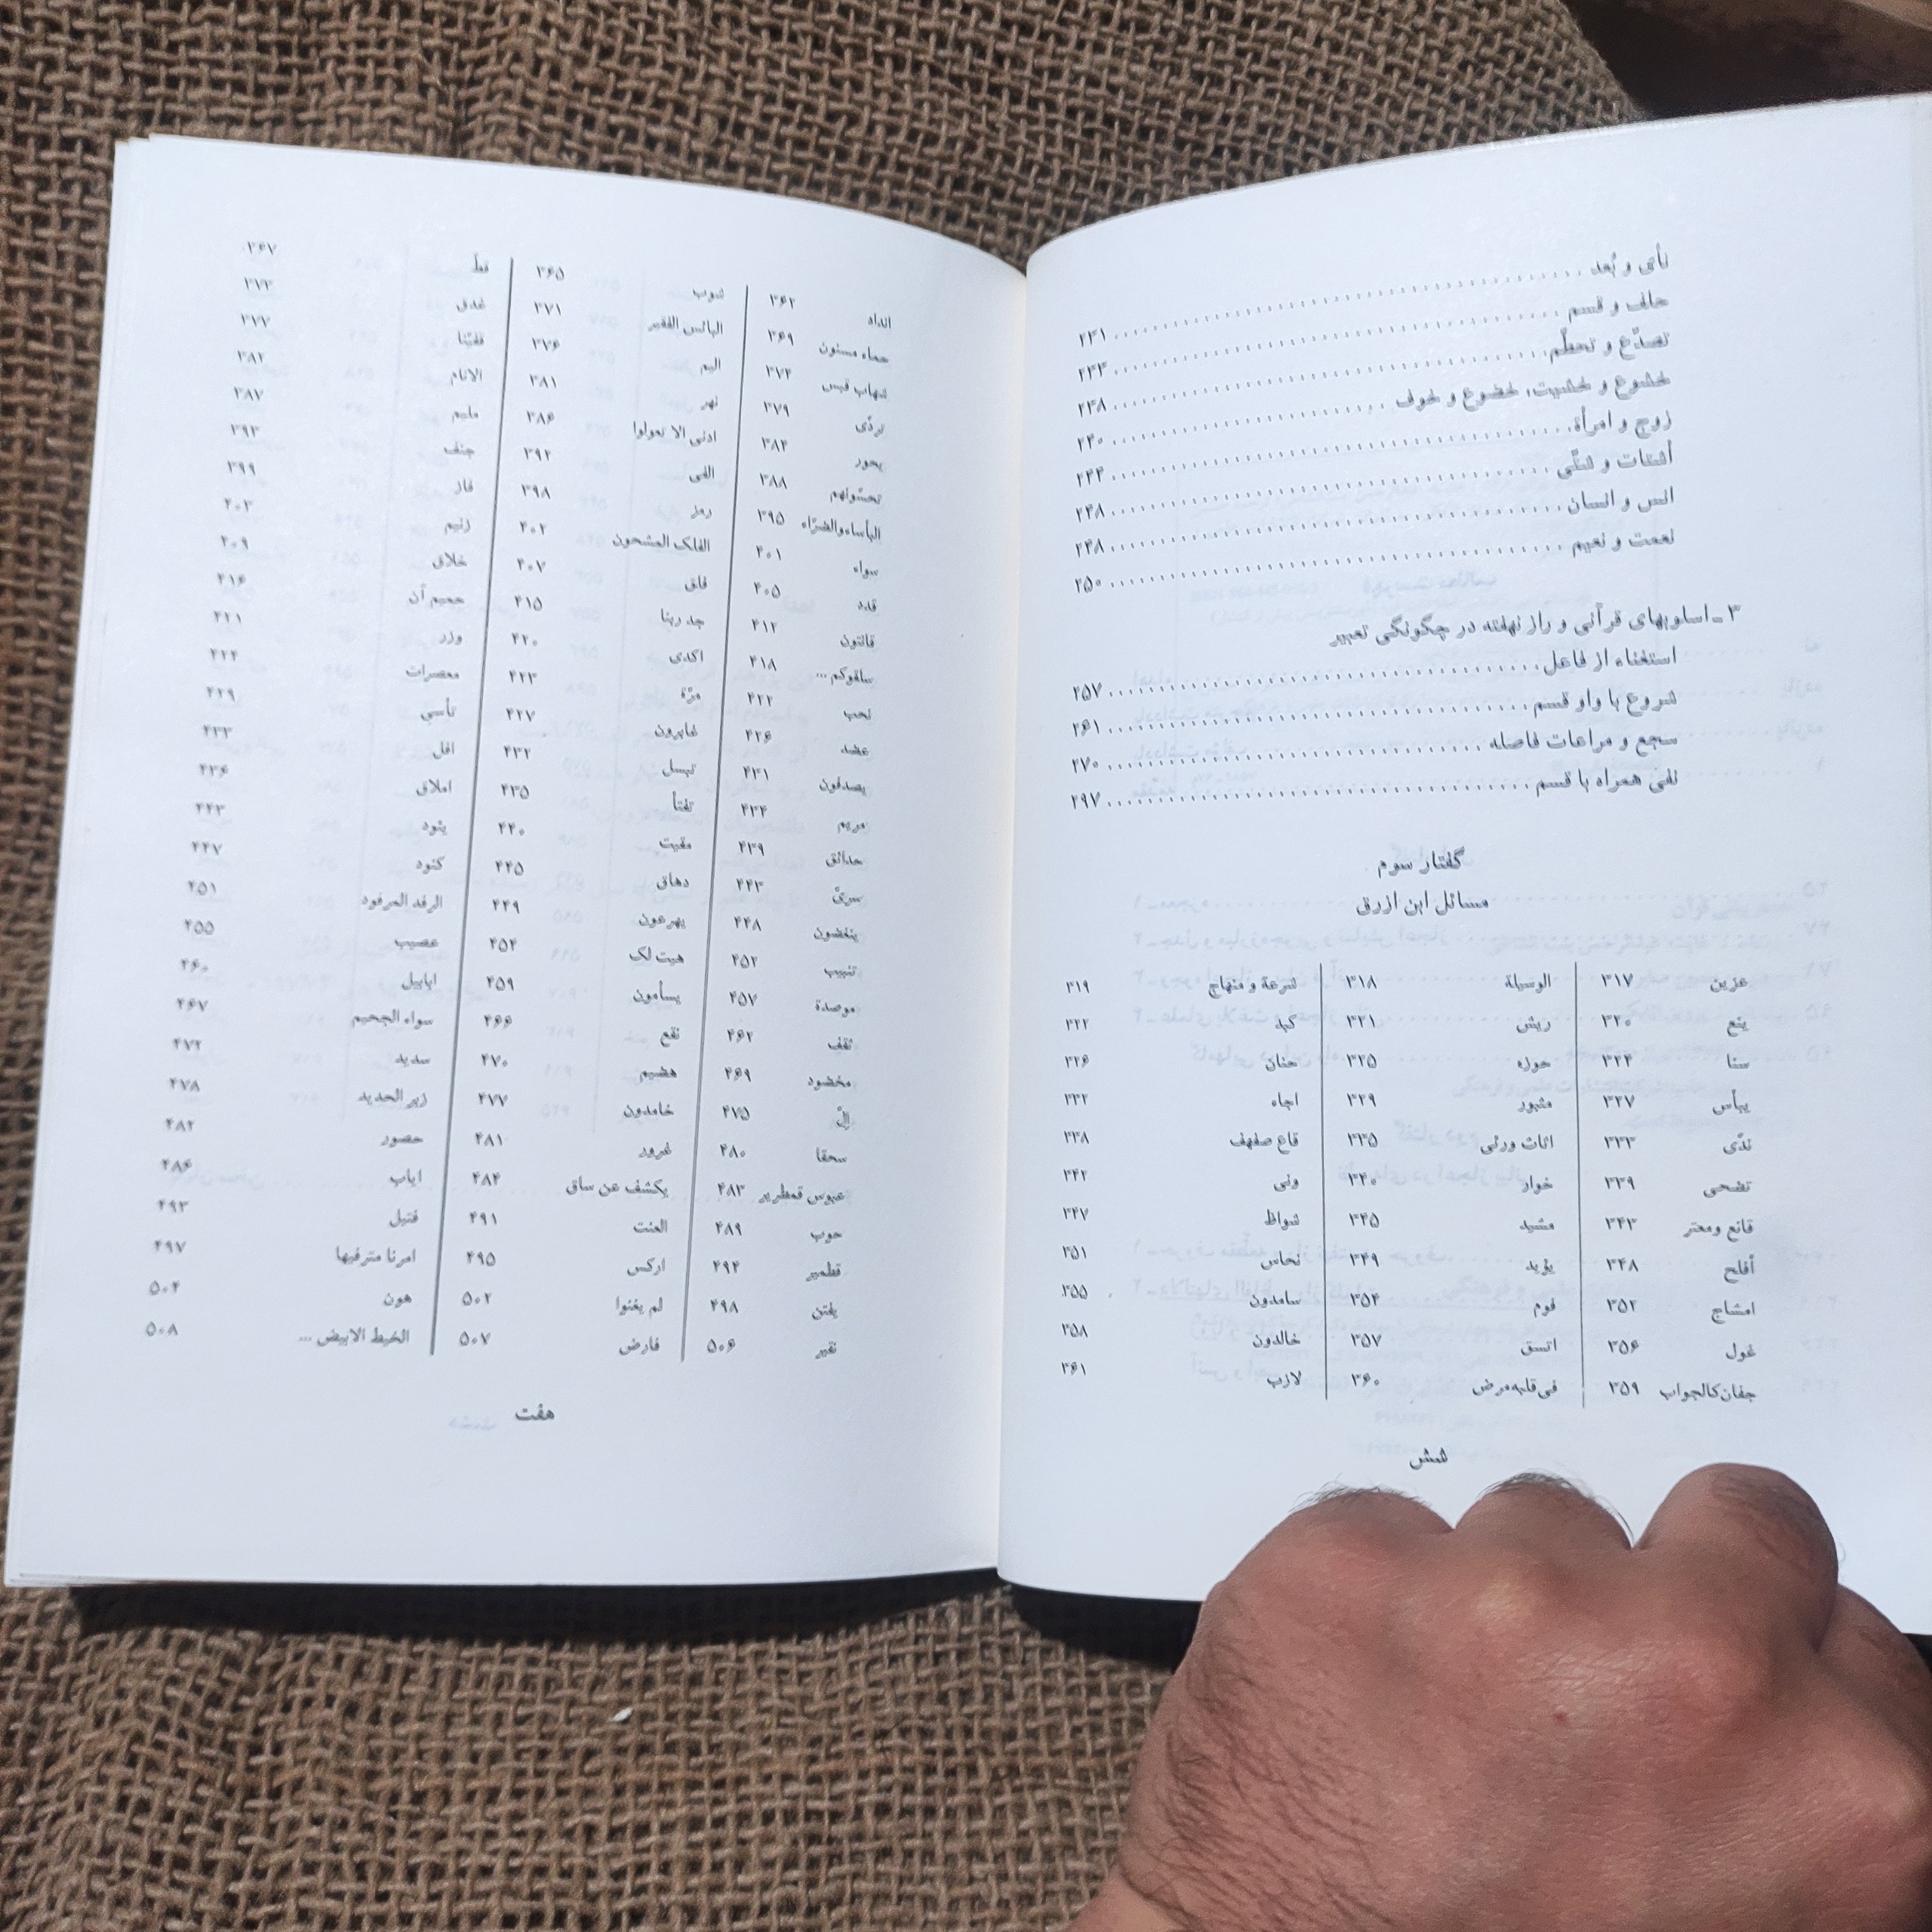 نأی و بُعد ........ ۲۳۱
حلف و قسم ........ ۲۳۳
تصدّع و تحطّم ........ ۲۳۸
خشوع و خشیت، خضوع و خوف ........ ۲۴۰
زوج و امرأة ........ ۲۴۴
أشتات و شتّی ........ ۲۴۸
انس و انسان ........ ۲۴۸
نعمت و نعیم ........ ۲۵۰
۳ـ اسلوبهای قرآنی و راز نهفته در چگونگی تعبیر
استغناء از فاعل ........ ۲۵۷
شروع با واو قسم ........ ۲۶۱
سجع و مراعات فاصله ........ ۲۷۰
نفی همراه با قسم ........ ۲۹۷
گفتار سوم
مسائل ابن ازرق
عزین ۳۱۷ الوسیلة ۳۱۸ شرعة و منهاج ۳۱۹
ینع ۳۲۰ ریش ۳۲۱ کبد ۳۲۲
سنا ۳۲۴ حوزه ۳۲۵ حنان ۳۲۶
ییأس ۳۲۷ مثبور ۳۲۹ اجاء ۳۳۲
ندّی ۳۳۳ اثاث ورئی ۳۳۵ قاع صفهف ۳۳۸
تضحی ۳۳۹ خوار ۳۴۰ ونی ۳۴۲
قانع ومعتر ۳۴۳ مشید ۳۴۵ شواظ ۳۴۷
أفلح ۳۴۸ یؤید ۳۴۹ نحاس ۳۵۱
امشاج ۳۵۲ فوم ۳۵۴ سامدون ۳۵۵
غول ۳۵۶ اتسق ۳۵۷ خالدون ۳۵۸
جفان کالجواب ۳۵۹ فی قلبه مرض ۳۶۰ لازب ۳۶۱
شش
انداد ۳۶۲ شوب ۳۶۵ قطّ ۳۶۷
حماء مسنون ۳۶۹ البائس الفقیر ۳۷۱ غدق ۳۷۳
شهاب قبس ۳۷۴ الیم ۳۷۶ قفیّنا ۳۷۷
تردّی ۳۷۹ نهر ۳۸۱ الانام ۳۸۲
یحور ۳۸۴ ادنی الا تعولوا ۳۸۶ ملیم ۳۸۷
تحسّونهم ۳۸۸ الفی ۳۹۲ جنف ۳۹۳
البأساء والضرّاء ۳۹۵ رمز ۳۹۸ فاز ۳۹۹
سواء ۴۰۱ الفلک المشحون ۴۰۲ زنیم ۴۰۳
قدد ۴۰۵ فلق ۴۰۷ خلاق ۴۰۹
قانتون ۴۱۲ جد ربنا ۴۱۵ حمیم آن ۴۱۶
سلقوکم ... ۴۱۸ اکدی ۴۲۰ وزر ۴۲۱
نحب ۴۲۲ مرّة ۴۲۳ معصرات ۴۲۴
عضد ۴۲۶ غابرون ۴۲۷ تأسی ۴۲۹
یصدفون ۴۳۱ تبسل ۴۳۲ افل ۴۳۳
صریم ۴۳۴ تفتأ ۴۳۵ املاق ۴۳۶
حدائق ۴۳۹ مقیت ۴۴۰ یئود ۴۴۳
سریّ ۴۴۳ دهاق ۴۴۵ کنود ۴۴۷
ینغضون ۴۴۸ یهرعون ۴۴۹ الرفد المرفود ۴۵۱
تتبیب ۴۵۲ هیت لک ۴۵۴ عصیب ۴۵۵
موصدة ۴۵۷ یسأمون ۴۵۹ ابابیل ۴۶۰
ثقف ۴۶۲ نقع ۴۶۶ سواء الجحیم ۴۶۷
مخضود ۴۶۹ هضیم ۴۷۰ سدید ۴۷۲
إلّ ۴۷۵ خامدون ۴۷۷ زبر الحدید ۴۷۸
سحقا ۴۸۰ غرور ۴۸۱ حصور ۴۸۲
عبوس قمطریر ۴۸۳ یکشف عن ساق ۴۸۴ ایاب ۴۸۶
حوب ۴۸۹ العنت ۴۹۱ فتیل ۴۹۳
قطمیر ۴۹۴ ارکس ۴۹۵ امرنا مترفیها ۴۹۷
یفتن ۴۹۸ لم یغنوا ۵۰۲ هون ۵۰۴
نقیر ۵۰۶ فارض ۵۰۷ الخیط الابیض ... ۵۰۸
هفت